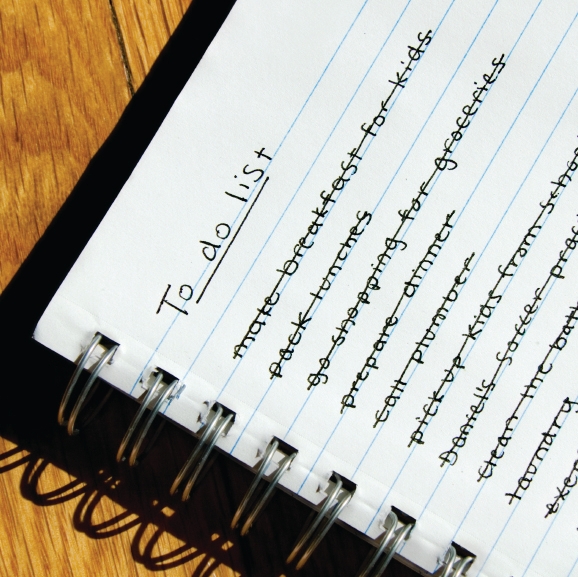 To do list
make breakfast for kids
pack lunches
go shopping for groceries
prepare dinner
call plumber
pick up kids from
Daniel's soccer
clean the
laundry